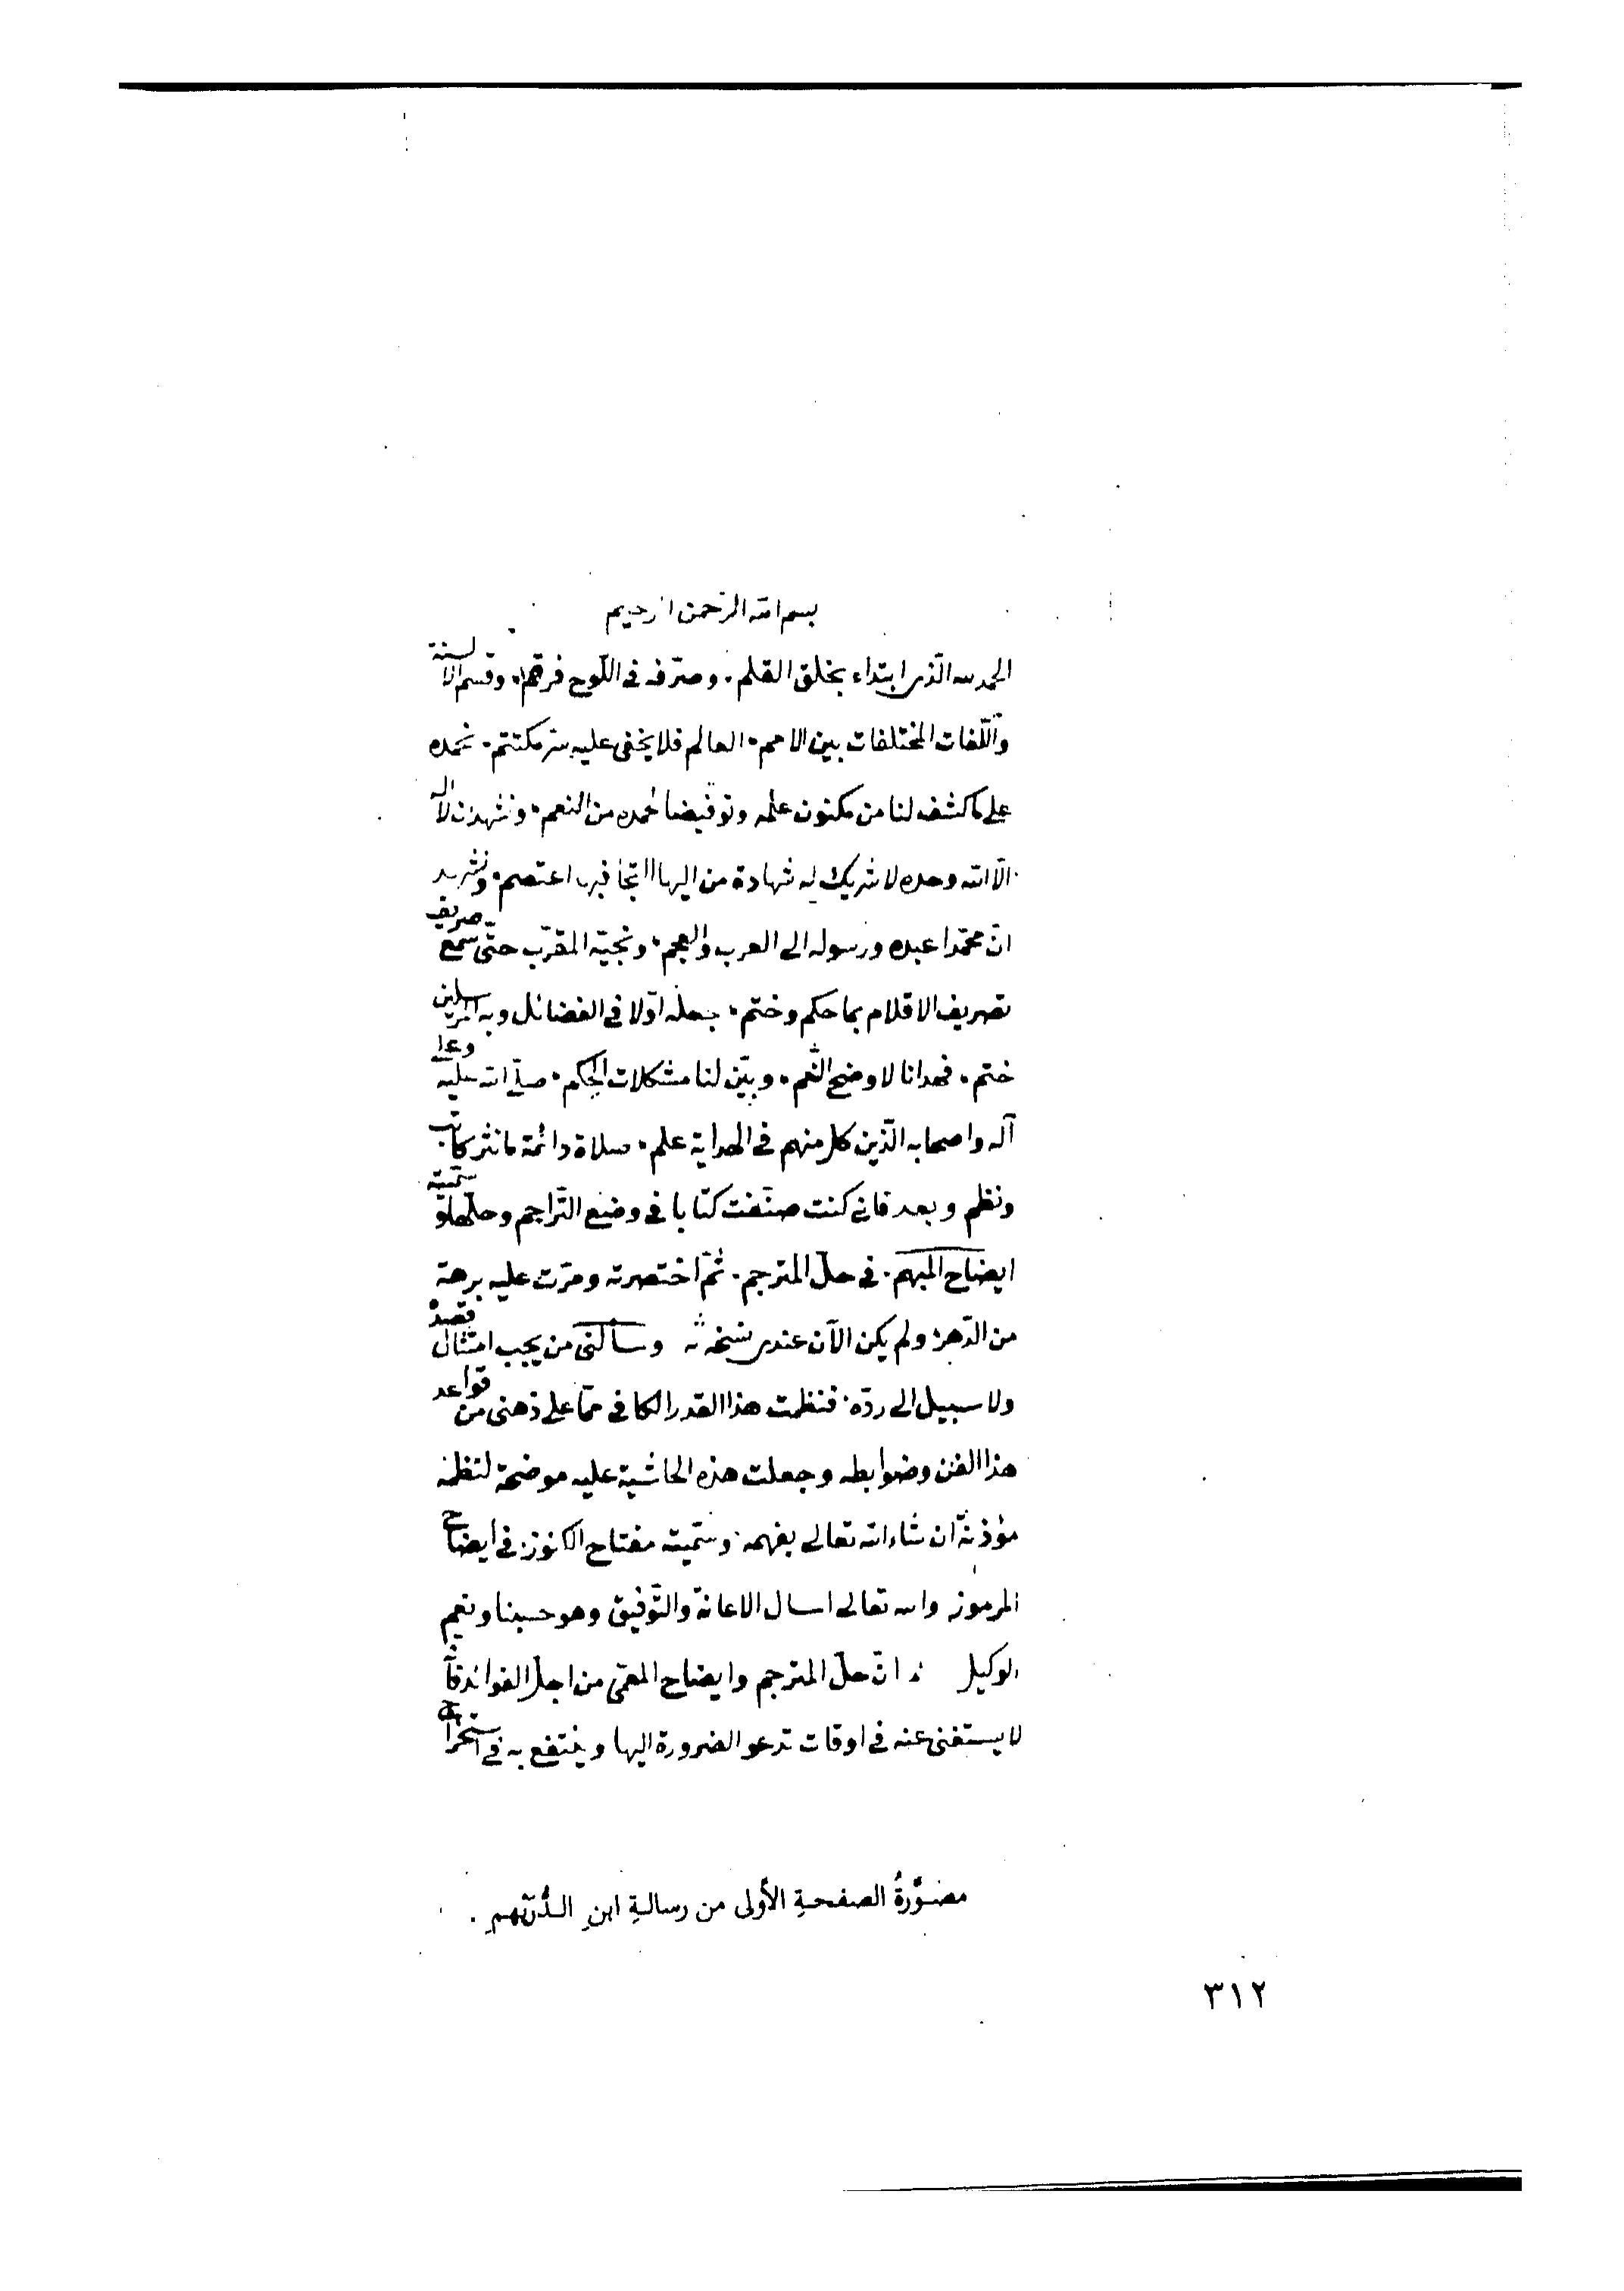 بسم الله الرحمن الرحيم
الحمد لله الّذى ابتداء بخلق القلم. وصرّفه فى اللّوح فرقم. وقسم الالسنة
واللّغات المختلفات بين الامم. العالم فلا يخفى عليه سرّ مكتتم. نحمده
على ما كشف لنا من مكنون علمه وتوفيضا نحمده من النعم. ونشهد ان لا اله
الّا الله وحده لا شريك له شهادة من اليها التجا فبها اعتصم. ونشهد
انّ محمّدا عبده ورسوله الى العرب والعجم. ونجيّه المقرّب حتّى سمع صريف
تصريف الاقلام بما حكم وختم. جعله اوّلا فى الفضائل وبه المرسلين
ختم. فهدانا لاوضح اللّقم. وبيّن لنا مشكلات الحكم. صلّى الله عليه وعلى
آله واصحابه الّذين كل منهم فى الهداية علم. صلاة دائمة ما نثر كاتب
ونظم وبعد فانى كنت صنّفت كتابا فى وضع التّراجم وحلّها وسمّيته
ايضاح المبهم. فى حلّ المترجم. ثمّ اختصرته ومرّت عليه برهة
من الدّهر. ولم يكن الآن عندى نسخته وسألنى من يجب امتثال قصده
ولا سبيل الى ردّه. فنظمت هذا القدر الكافى ممّا على ذهنى من قواعد
هذا الفن وضوابطه وجعلت هذه الحاشية عليه موضحة لنظمه
مؤذنة ان شاء الله تعالى بفهمه. وسمّيته مفتاح الكنوز. فى ايضاح
المرموز والله تعالى اسال الاعانة والتّوفيق وهو حسبنا ونعم
الوكيل انّ حلّ المترجم وايضاح المعمّى من اجلّ الفوائد فانّه
لا يستغنى عنه فى اوقات تدعو الضرورة اليها وينتفع به فى استخراج
مصوَّرةُ الصفحةِ الأولى من رسالةِ ابنِ الدُّرَيْهِمِ .
٣١٢